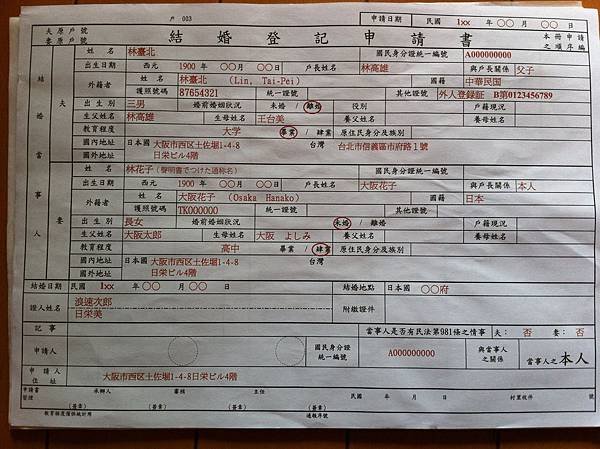 戶 003
申請日期 民國 1xx 年 〇〇 月 〇〇 日
夫原戶號
妻原戶號
結婚登記申請書
本冊申請之順序編
結婚當事人
夫
姓名 林臺北 國民身分證統一編號 A000000000
出生日期 西元 1900 年 〇〇 月 〇〇日 戶長姓名 林高雄 與戶長關係 父子
外籍者 林臺北 (Lin, Tai-Pei) 國籍 中華民国
護照號碼 87654321 統一證號 其他證號 外人登録証 B第0123456789
出生別 三男 婚前婚姻狀況 未婚 / 離婚 役別 戶籍現況
生父姓名 林高雄 生母姓名 王台美 養父姓名 養母姓名
教育程度 大学 畢業 / 肄業 原住民身分及族別
國內地址 日本國 大阪市西区土佐堀1-4-8 台灣 台北市信義區市府路1號
國外地址 日栄ビル4階
妻
姓名 林花子(聲明書でつけた通称名) 國民身分證統一編號
出生日期 西元 1900 年 〇〇 月 〇〇日 戶長姓名 大阪花子 與戶長關係 本人
外籍者 大阪花子 (Osaka Hanako) 國籍 日本
護照號碼 TK000000 統一證號 其他證號
出生別 長女 婚前婚姻狀況 未婚 / 離婚 戶籍現況
生父姓名 大阪太郎 生母姓名 大阪 よしみ 養父姓名 養母姓名
教育程度 高中 畢業 / 肄業 原住民身分及族別
國內地址 日本國 大阪市西区土佐堀1-4-8 台灣
國外地址 日栄ビル4階
結婚日期 民國 1xx 年 〇〇 月 〇〇 日 結婚地點 日本國 〇〇府
證人姓名 浪速次郎 附繳證件
日栄美
記事 當事人是否有民法第981條之情事 夫: 否 妻: 否
申請人 國民身分證統一編號 A000000000 與當事人之關係 當事人之本人
申請人住址 大阪市西区土佐堀1-4-8日栄ビル4階
申請書 承辦人 審核 主任 民國 年 月 日 村里收件 號
(簽章) (簽章) (簽章)